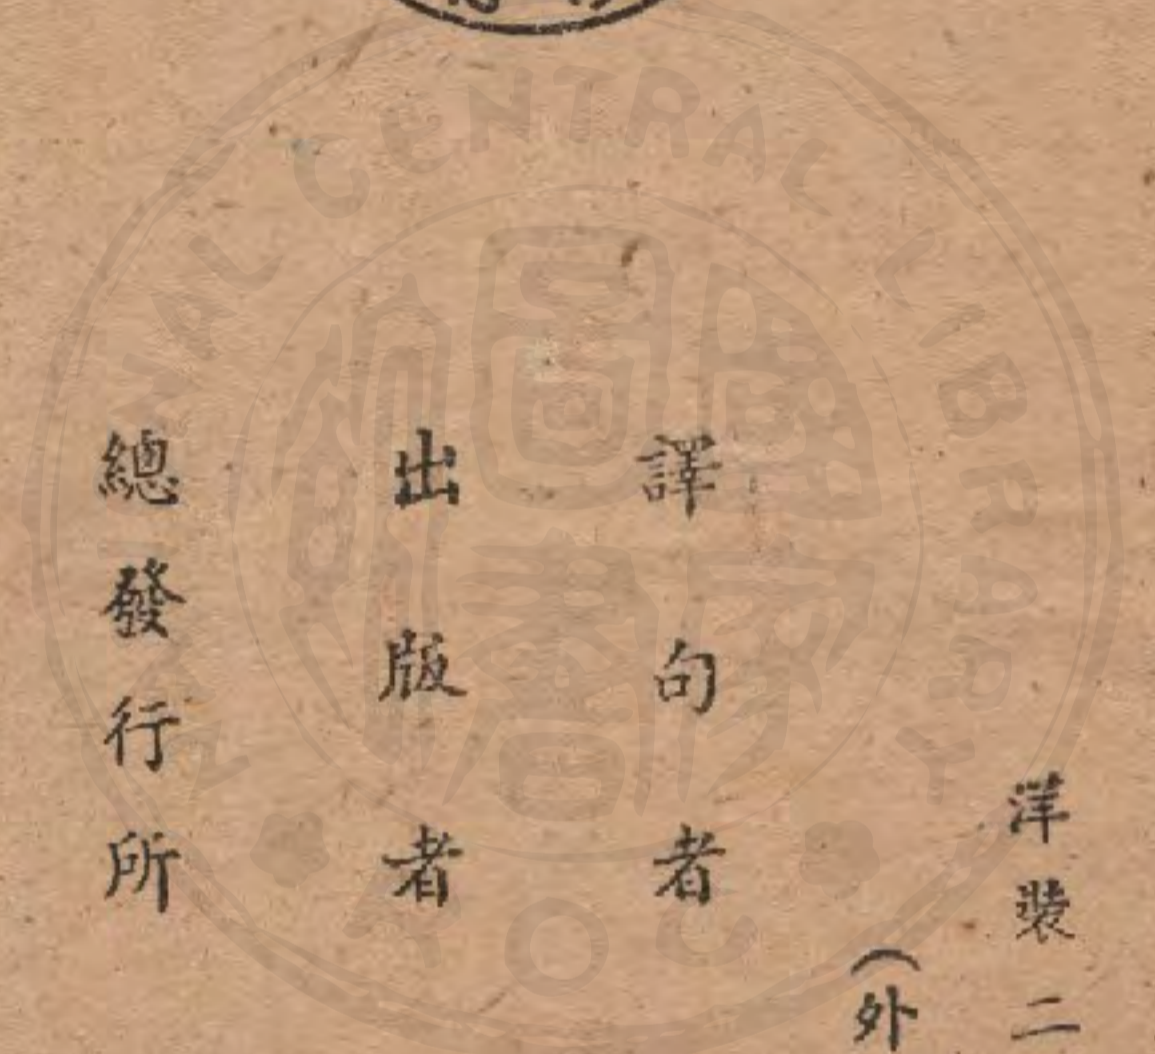 洋裝二
(外
譯句者
出版者
總發行所
NATIONAL CENTRAL LIBRARY